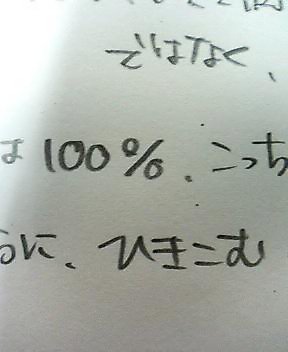 ではなく、
は100%、こっち
うに、ひきこむ